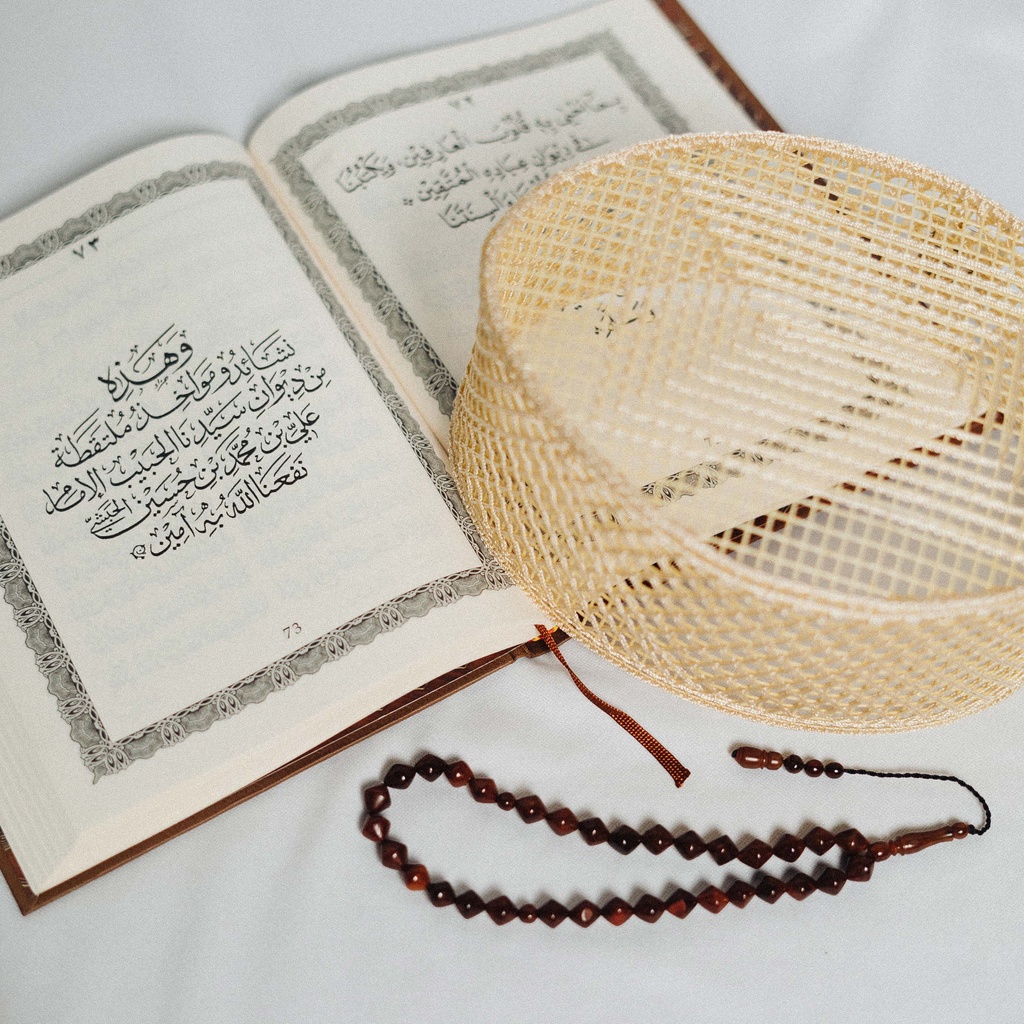 ٧٢
بِهَا الْغَمّٰى بِهِ قُلُوْبَ الْعَارِفِيْنَ وَيَكْتُبُنَا
فِيْ دِيْوَانِ عِبَادِهِ الْمُتَّقِيْنَ
٧٣
وَهٰذِهِ
نَشَائِدُ وَمَوَاخِذُ مُلْتَقَطَة
مِنْ دِيْوَانِ سَيِّدِنَا الْحَبِيْبِ الْإِمَامِ
عَلِيِّ بْنِ مُحَمَّدِ بْنِ حُسَيْنِ الْحَبْشِيِّ
نَفَعَنَا اللهُ بِهِ آمِيْن
73